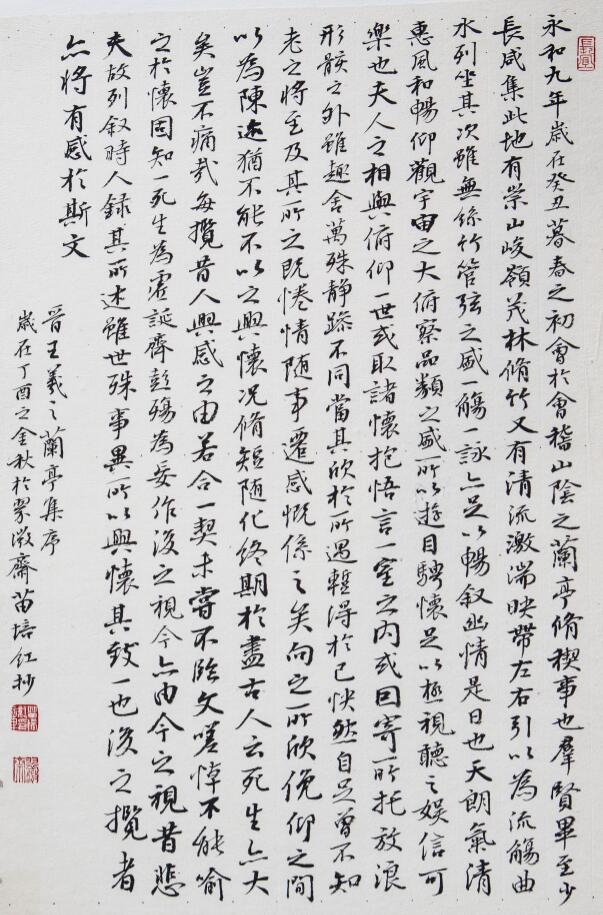 永和九年歲在癸丑暮春之初會於會稽山陰之蘭亭脩禊事也羣賢畢至少
長咸集此地有崇山峻嶺茂林脩竹又有清流激湍映帶左右引以為流觴曲
水列坐其次雖無絲竹管弦之盛一觴一詠亦足以暢叙幽情是日也天朗氣清
惠風和暢仰觀宇宙之大俯察品類之盛所以遊目騁懷足以極視聽之娛信可
樂也夫人之相與俯仰一世或取諸懷抱悟言一室之內或因寄所托放浪
形骸之外雖趣舍萬殊靜躁不同當其欣於所遇暫得於己快然自足曾不知
老之將至及其所之既惓情随事遷感慨係之矣向之所欣俛仰之間
以為陳迹猶不能不以之興懷況脩短随化終期於盡古人云死生亦大
矣豈不痛哉每攬昔人興感之由若合一契未嘗不臨文嗟悼不能喻
之於懷固知一死生為虛誕齊彭殤為妄作後之視今亦由今之視昔悲
夫故列叙時人録其所述雖世殊事異所以興懷其致一也後之攬者
亦將有感於斯文
晉王羲之蘭亭集序
歲在丁酉之金秋於翠微齋苗培红抄